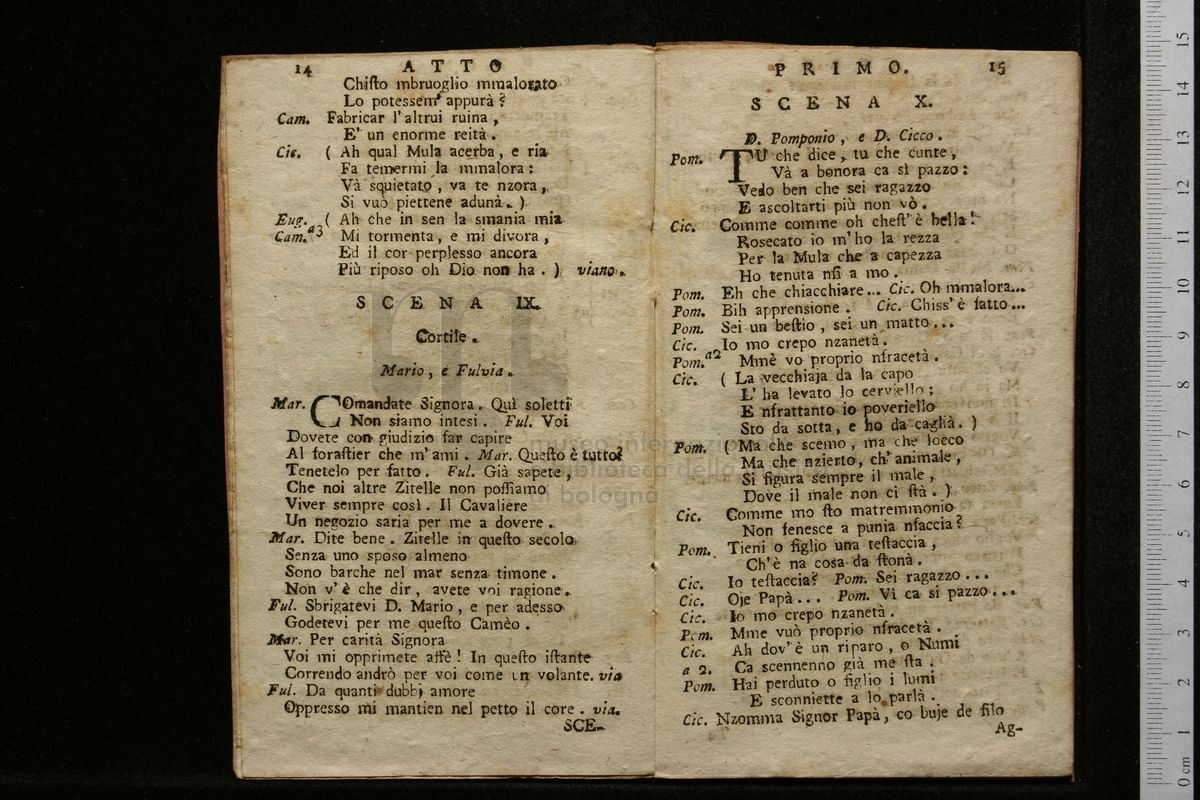 14 ATTO
Chisto mbruoglio mmalorato
Lo potessem' appurà?
Cam. Fabricar l'altrui ruina,
E' un enorme reità.
Cic. ( Ah qual Mula acerba, e ria
Fa temermi la mmalora:
Và squietato, va te nzora,
Si vuò piettene adunà. )
Eug. ( Ah che in sen la smania mia
Cam. a3 Mi tormenta, e mi divora,
Ed il cor perplesso ancora
Più riposo oh Dio non ha. ) viano.
SCENA IX.
Cortile.
Mario, e Fulvia.
Mar. COmandate Signora. Quì soletti
Non siamo intesi. Ful. Voi
Dovete con giudizio far capire
Al forastier che m'ami. Mar. Questo è tutto?
Tenetelo per fatto. Ful. Già sapete,
Che noi altre Zitelle non possiamo
Viver sempre così. Il Cavaliere
Un negozio saria per me a dovere.
Mar. Dite bene. Zitelle in questo secolo
Senza uno sposo almeno
Sono barche nel mar senza timone.
Non v'è che dir, avete voi ragione.
Ful. Sbrigatevi D. Mario, e per adesso
Godetevi per me questo Camèo.
Mar. Per carità Signora
Voi mi opprimete affè! In questo istante
Correndo andrò per voi come un volante. via
Ful. Da quanti dubbj amore
Oppresso mi mantien nel petto il core. via.
SCE-
PRIMO. 15
SCENA X.
D. Pomponio, e D. Cicco.
Pom. TU che dice, tu che cunte,
Và a bonora ca sì pazzo:
Vedo ben che sei ragazzo
E ascoltarti più non vò.
Cic. Comme comme oh chest'è bella!
Rosecato io m'ho la rezza
Per la Mula che a capezza
Ho tenuta nsì a mo.
Pom. Eh che chiacchiare... Cic. Oh mmalora...
Pom. Bih apprensione. Cic. Chiss'è fatto...
Pom. Sei un bestio, sei un matto...
Cic. Io mo crepo nzanetà.
Pom. a2 Mmè vo proprio nfracetà.
Cic. ( La vecchiaja da la capo
L'ha levato lo cerviello;
E nfrattanto io poveriello
Sto da sotta, e ho da caglià. )
Pom. ( Ma che scemo, ma che locco
Ma che nzierto, ch'animale,
Si figura sempre il male,
Dove il male non ci stà. )
Cic. Comme mo sto matremmonio
Non fenesce a punia nfaccia?
Pom. Tieni o figlio una testaccia,
Ch'è na cosa da stonà.
Cic. Io testaccia? Pom. Sei ragazzo...
Cic. Oje Papà... Pom. Vi ca si pazzo...
Cic. Io mo crepo nzanetà.
Pom. Mme vuò proprio nfracetà.
Cic. Ah dov'è un riparo, o Numi
a 2. Ca scennenno già me sta.
Pom. Hai perduto o figlio i lumi
E sconniette a lo parlà.
Cic. Nzomma Signor Papà, co buje de filo
Ag-
museo internazionale
biblioteca della musica
di bologna